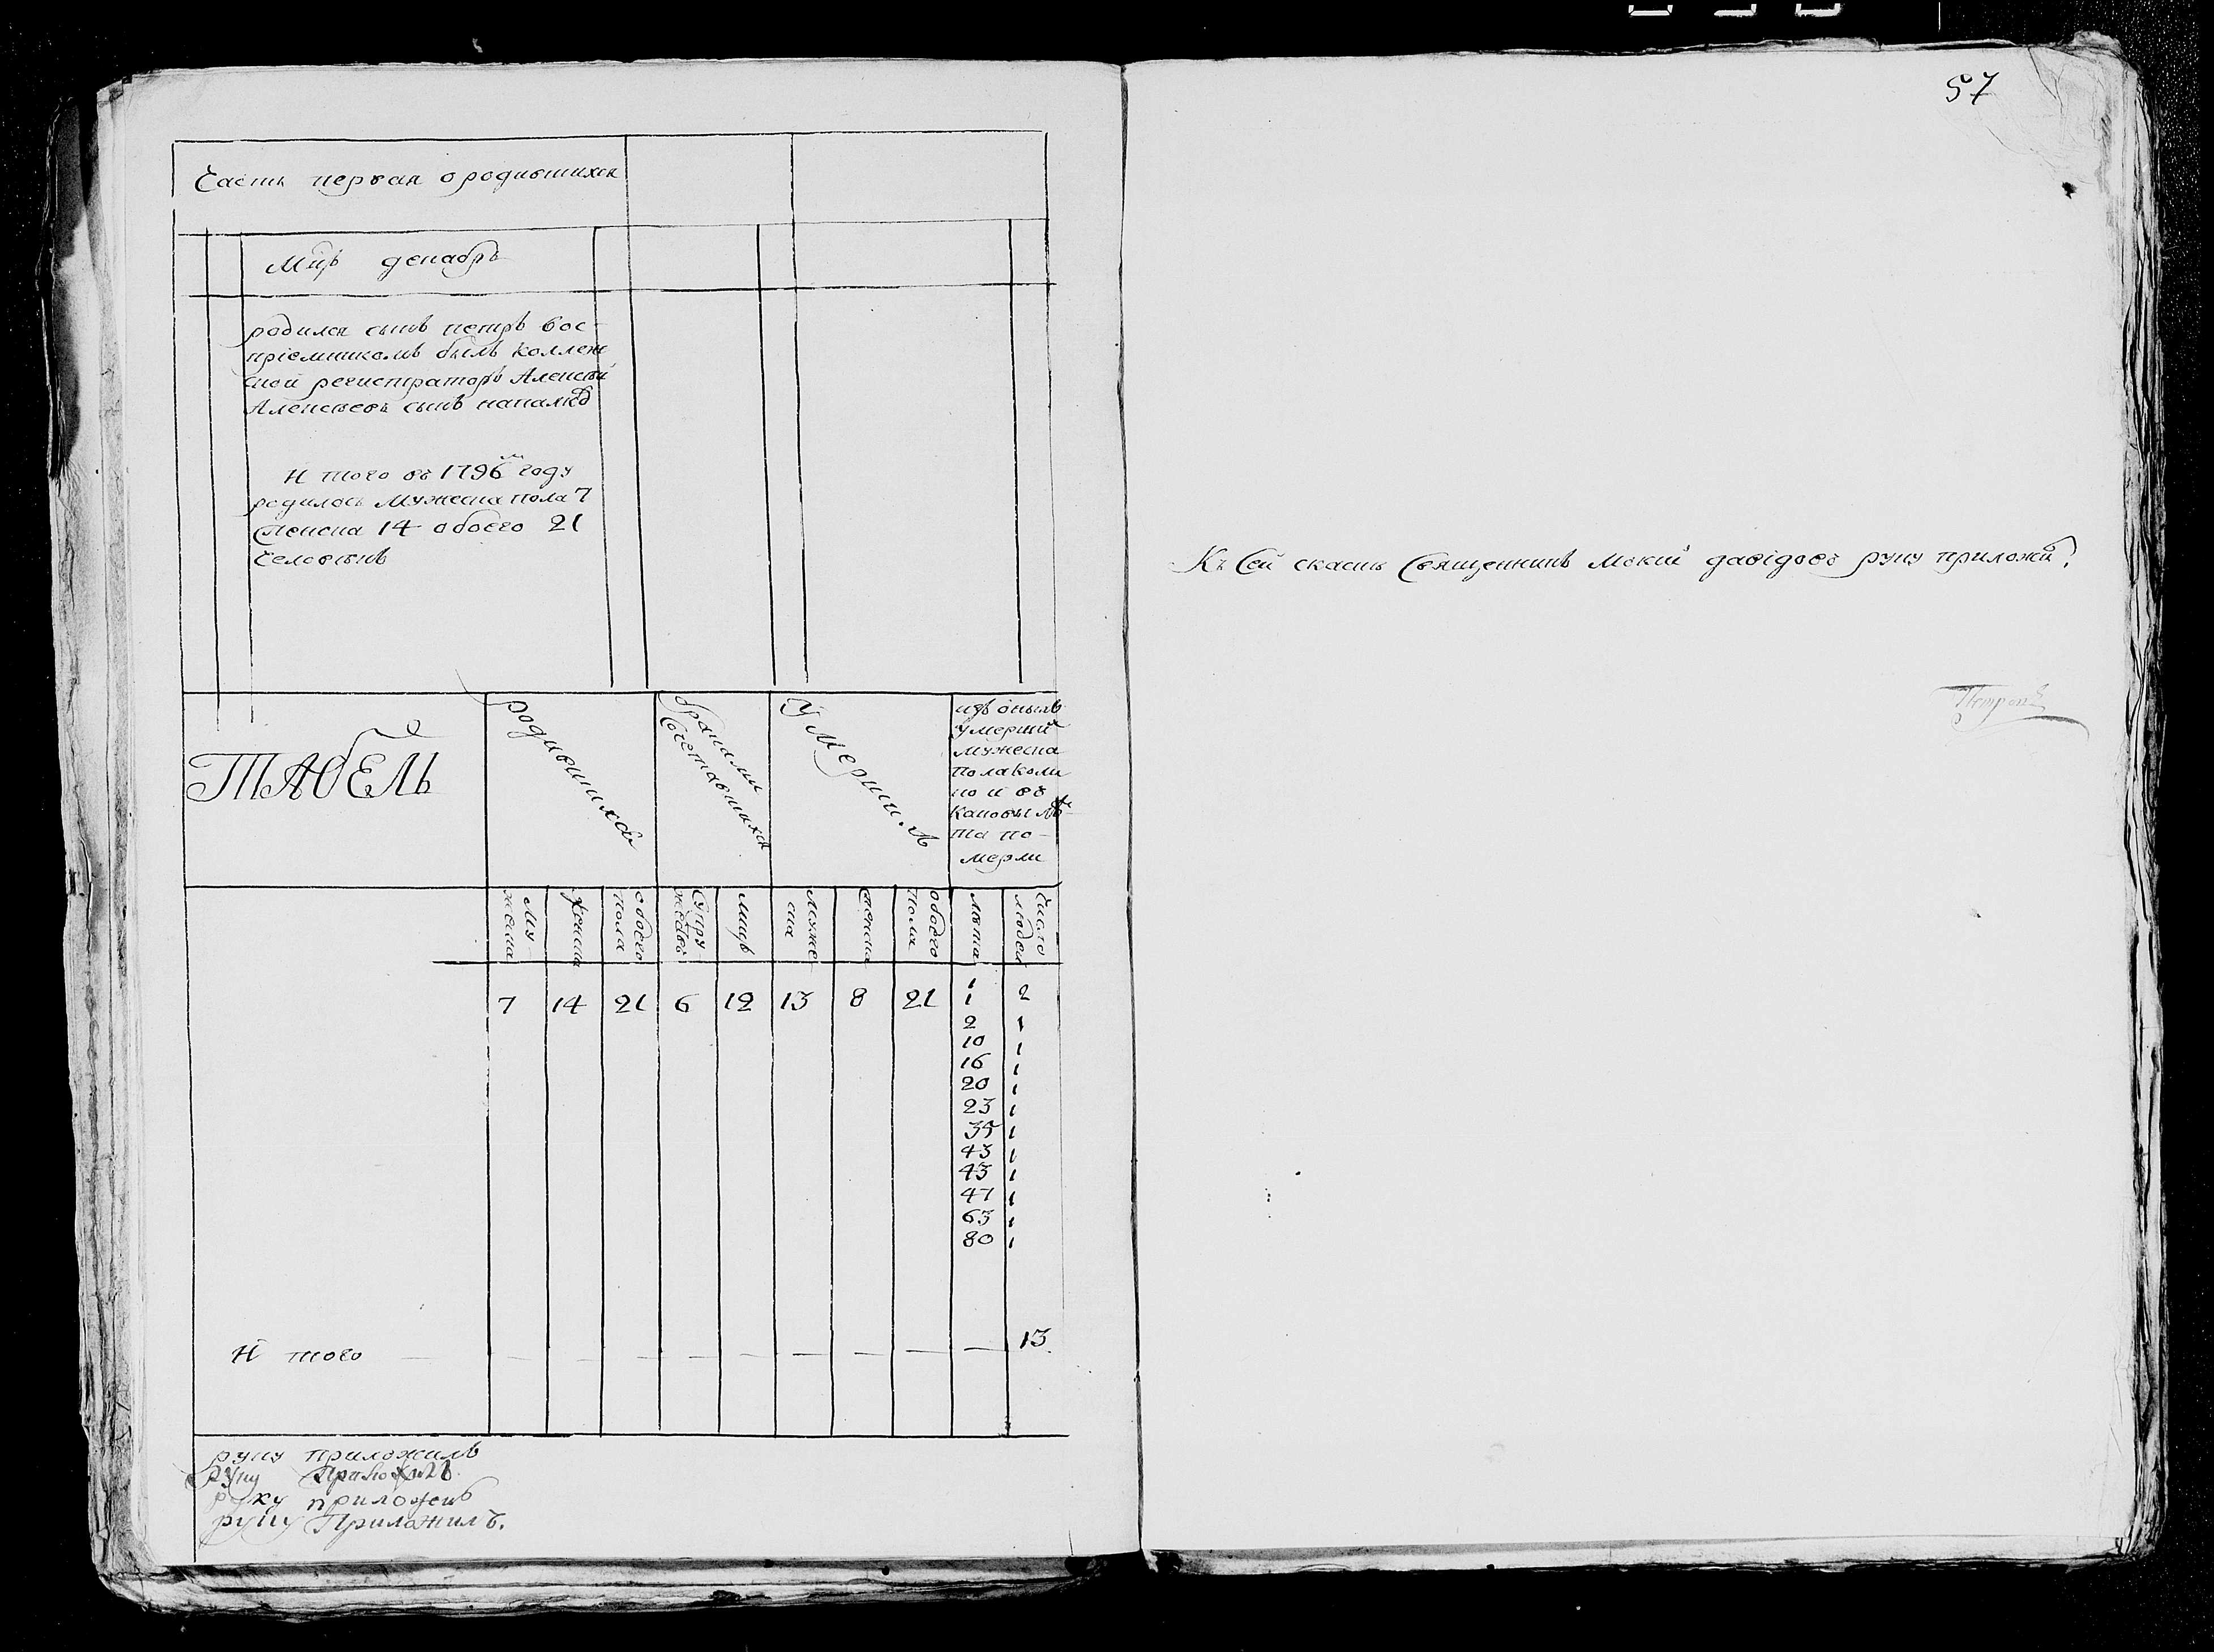 57
Часть первая о родившихся
Мцъ декабрь
родился сынъ петръ вос-
пріемникомъ былъ коллеж
ской регистраторъ Алексѣй
Алексѣевъ сынъ
И того въ 1796 м году
родилось мужеска пола 7
женска 14 обоего 21
человѣкъ
ТАбЕЛЬ
родившихся
браками
сочетавшихся
умерших
изъ оныхъ
умерших
мужеска
пола коли
ко и въ
каковы лѣ
та по-
мерли
му
жеска
женска
обоего
пола
супру
жествъ
лицъ
муже
ска
женска
обоего
пола
лѣта
число
людей
7 14 21 6 12 13 8 21 1
1 2
2 1
10 1
16 1
20 1
23 1
35 1
43 1
43 1
47 1
63 1
80 1
И того 13.
руку приложилъ
руку приложилъ
руку приложилъ
руку Приложилъ.
Къ сей скаскѣ священникъ давідовъ руку приложи